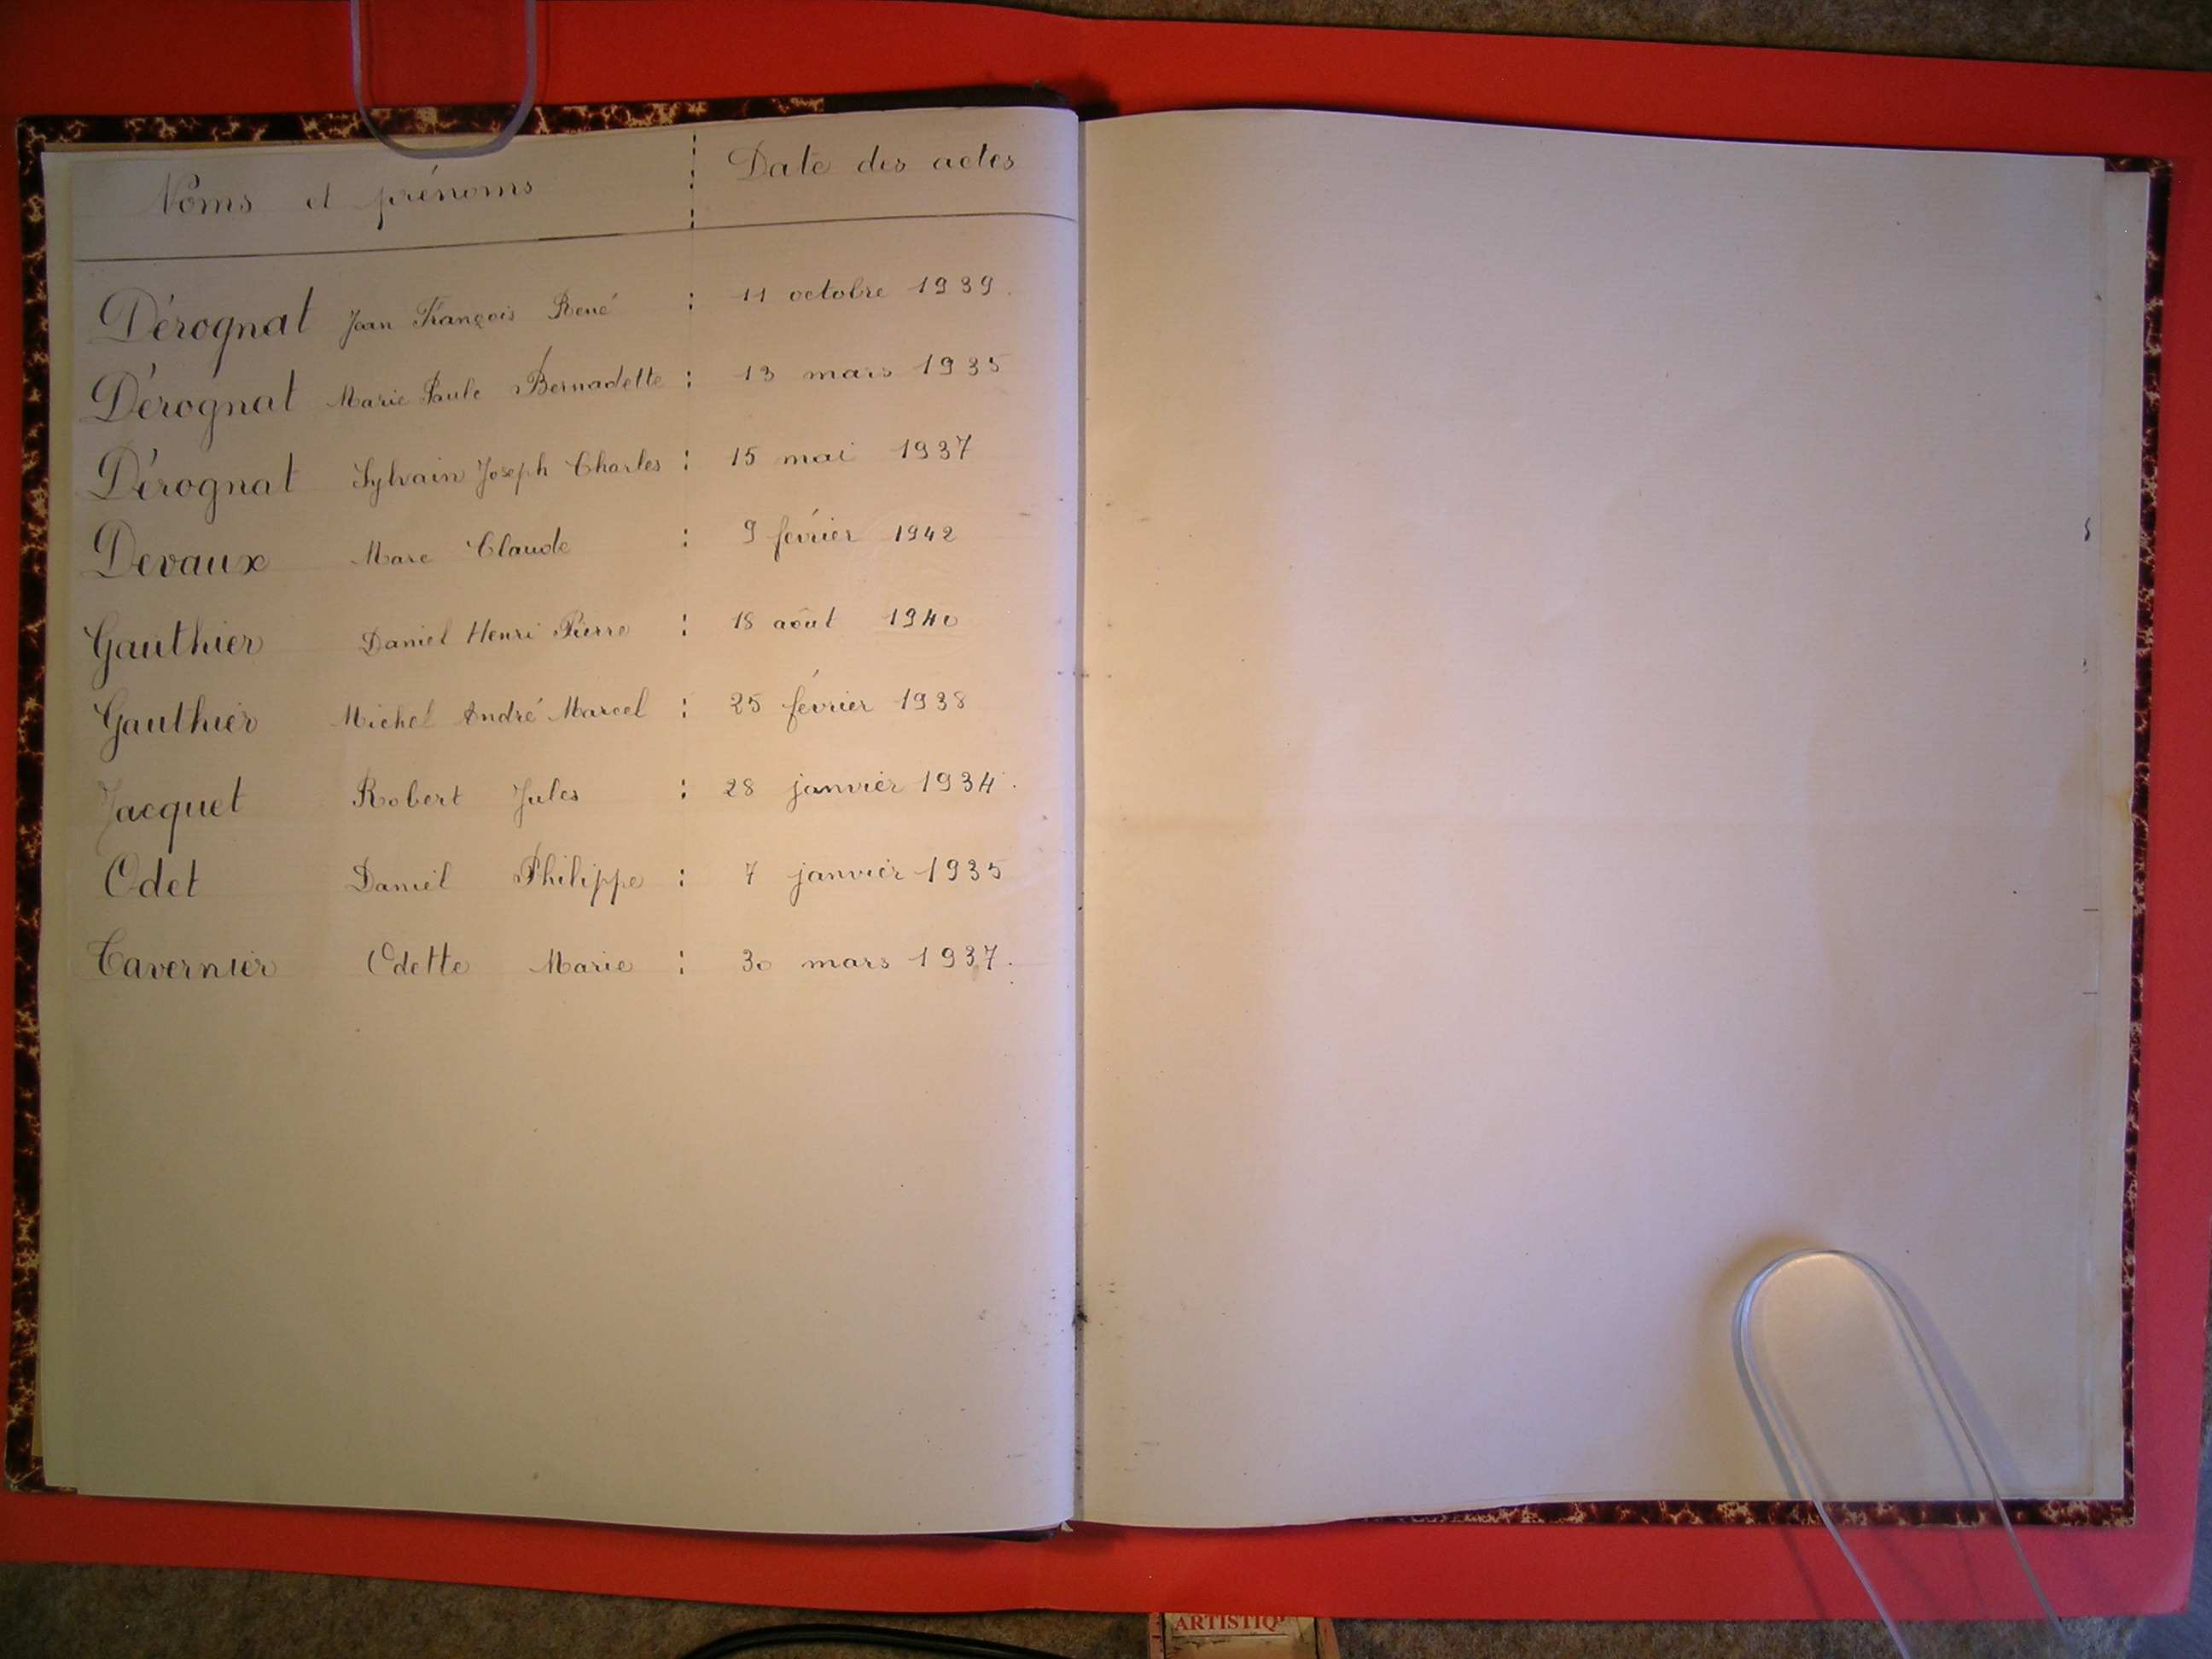 Noms et prénoms : Date des actes
Dérognat Jean François René : 11 octobre 1939.
Dérognat Marie Paule Bernadette : 13 mars 1935
Dérognat Sylvain Joseph Charles : 15 mai 1937
Devaux Marc Claude : 9 février 1942
Gauthier Daniel Henri Pierre : 18 août 1940
Gauthier Michel André Marcel : 25 février 1938
Jacquet Robert Jules : 28 janvier 1934.
Odet Daniel Philippe : 7 janvier 1935
Tavernier Odette Marie : 30 mars 1937.